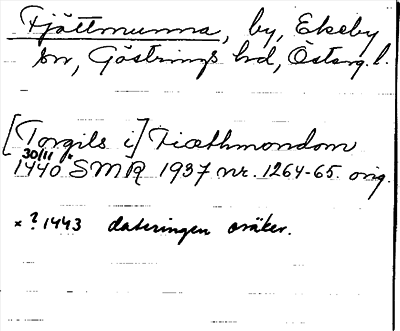 Fjättmunna, by, Ekeby
sn, Göstrings hd, Östarg. l.
[Torgils i] Fiæthmondom
30/11 x
1440 SMR 1937 nr. 1264-65 orig.
x ? 1443 dateringen osäker.